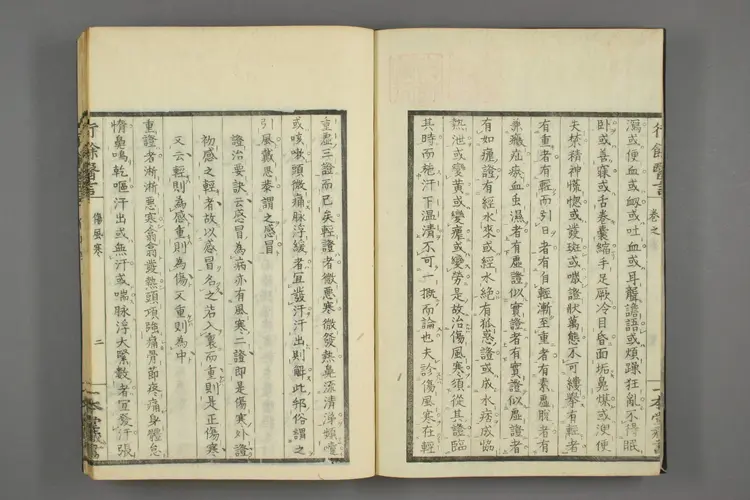 行餘醫言 卷之
瀉或便血或衂或吐血或耳聾譫語或煩躁狂亂不得眠
臥或善寐或舌卷囊縮手足厥冷目昏面垢鼻煤或溲便
失禁精神慌惚或發斑或噦證狀萬態不可縷擧有輕者
有重者有輕而引日者有自輕漸至重者有素虛脫者有
兼癥疝瘀血虫濕者有虛證似實證者有實證似虛證者
有如瘧證有經水來或經水絕有狐惑證或成水痞成協
熱泄或變黃或變癰或變勞是故治傷風寒須從其證臨
其時而施汗下溫清不可一概而論也夫診傷風寒在輕
重虛三證而已矣輕證者微惡寒微發熱鼻流清涕頻嚏
或咳嗽頭微痛脉浮緩者宜發汗汗出則解此邪俗謂之
引風戴思恭謂之感冒
證治要訣云感冒為病亦有風寒二證即是傷寒外證
初感之輕者故以感冒名之若入裏而重則是正傷寒
又云輕則為感重則為傷又重則為中
重證者淅淅惡寒翕翕發熱頭項強痛骨節疼痛身體怠
惰鼻鳴乾嘔汗出或無汗或喘脉浮大緊數者宜發汗張
行餘醫言
傷風寒
二
一本堂藏書